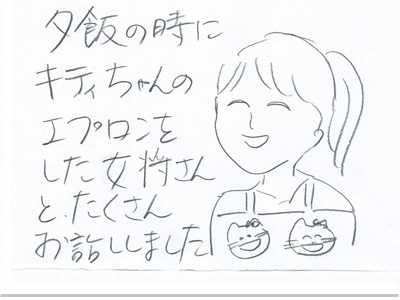 夕飯の時に
キティちゃんの
エプロンを
した女将さん
と、たくさん
お話ししました